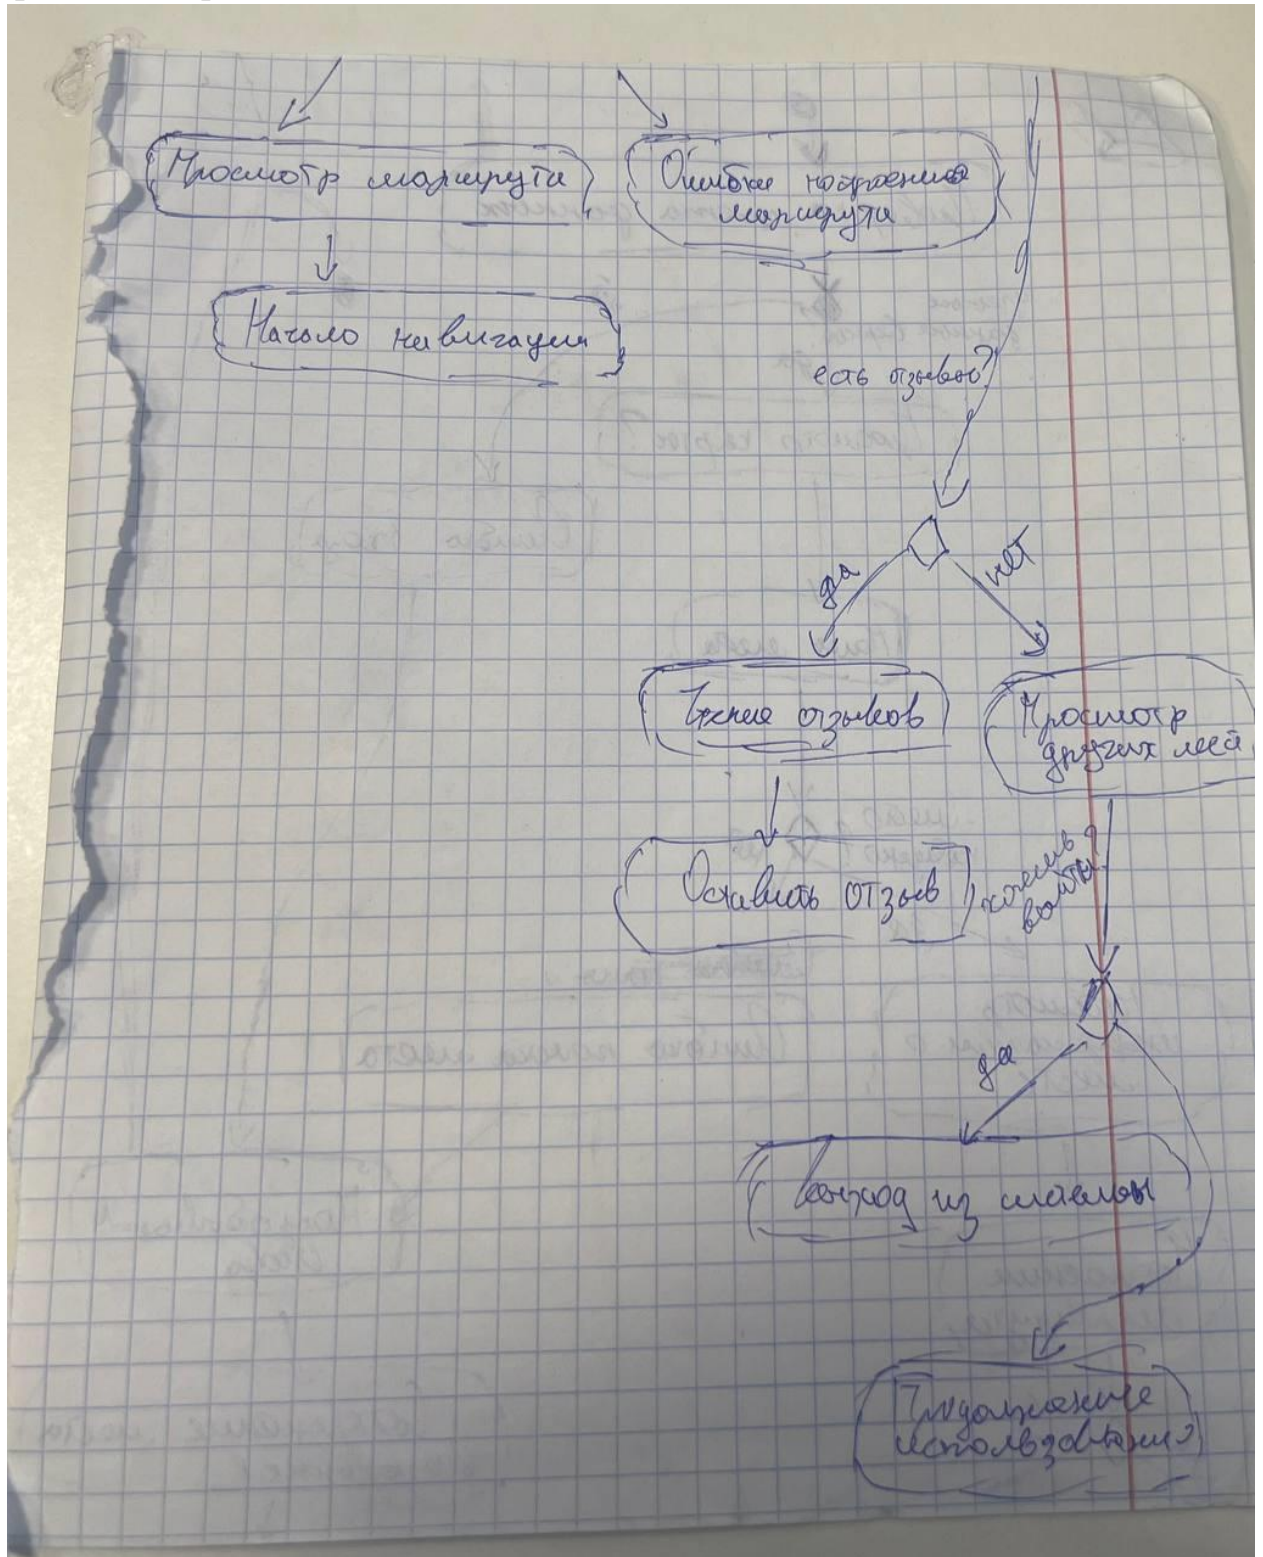 Просмотр маршрута
Ошибка построения
маршрута
Начало навигации
есть отзывы?
да
нет
Чтение отзывов
Просмотр
других мест
Оставить отзыв
хотите
выйти?
да
Выход из системы
Продолжение
использования